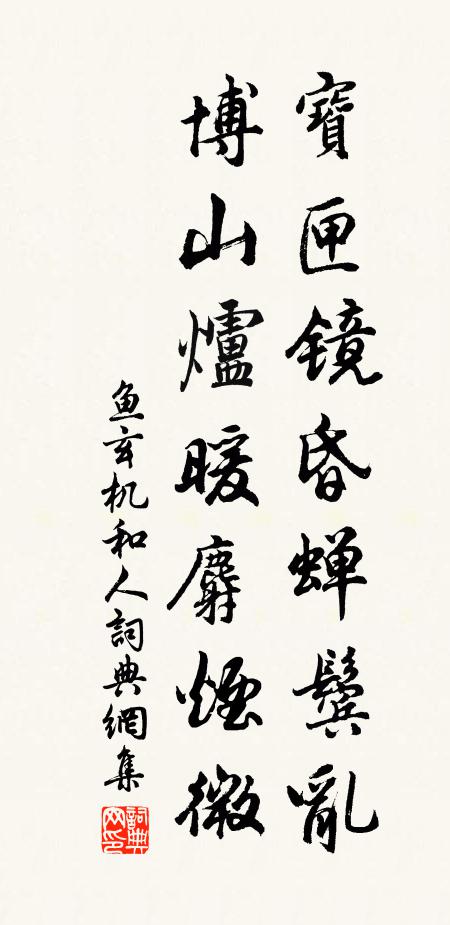 寶匣镜昏蝉鬓亂
博山爐暖麝煙微
鱼玄机和人詞典網集
詞典网印